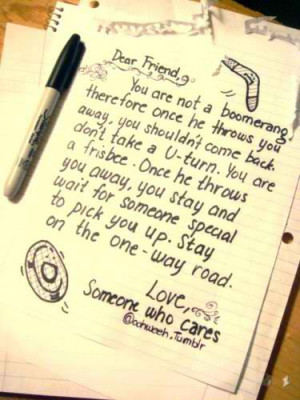 Dear Friend,
You are not a boomerang,
therefore once he throws you
away, you shouldn't come back.
don't take a U-turn. You are
a frisbee. Once he throws
you away, you stay and
wait for someone special
to pick you up. Stay
on the one-way road.
Love,
Someone who cares
@oohweeh.Tumblr